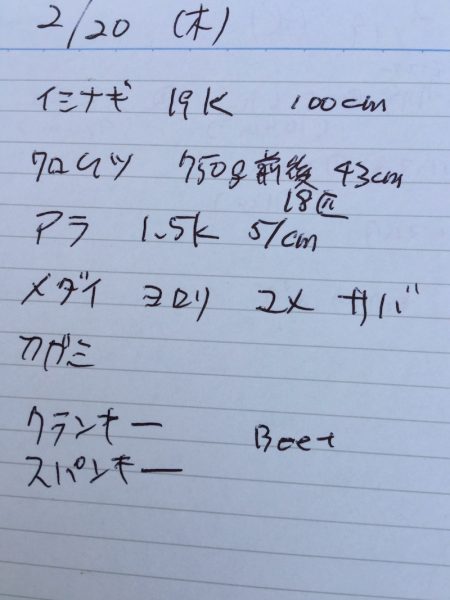 2/20 (木)
イシナギ 19K 100cm
クロムツ 750g前後 43cm
18匹
アラ 1.5K 51cm
メダイ ヨロリ ユメ サバ
カガミ
クランキー Beet
スパンキー